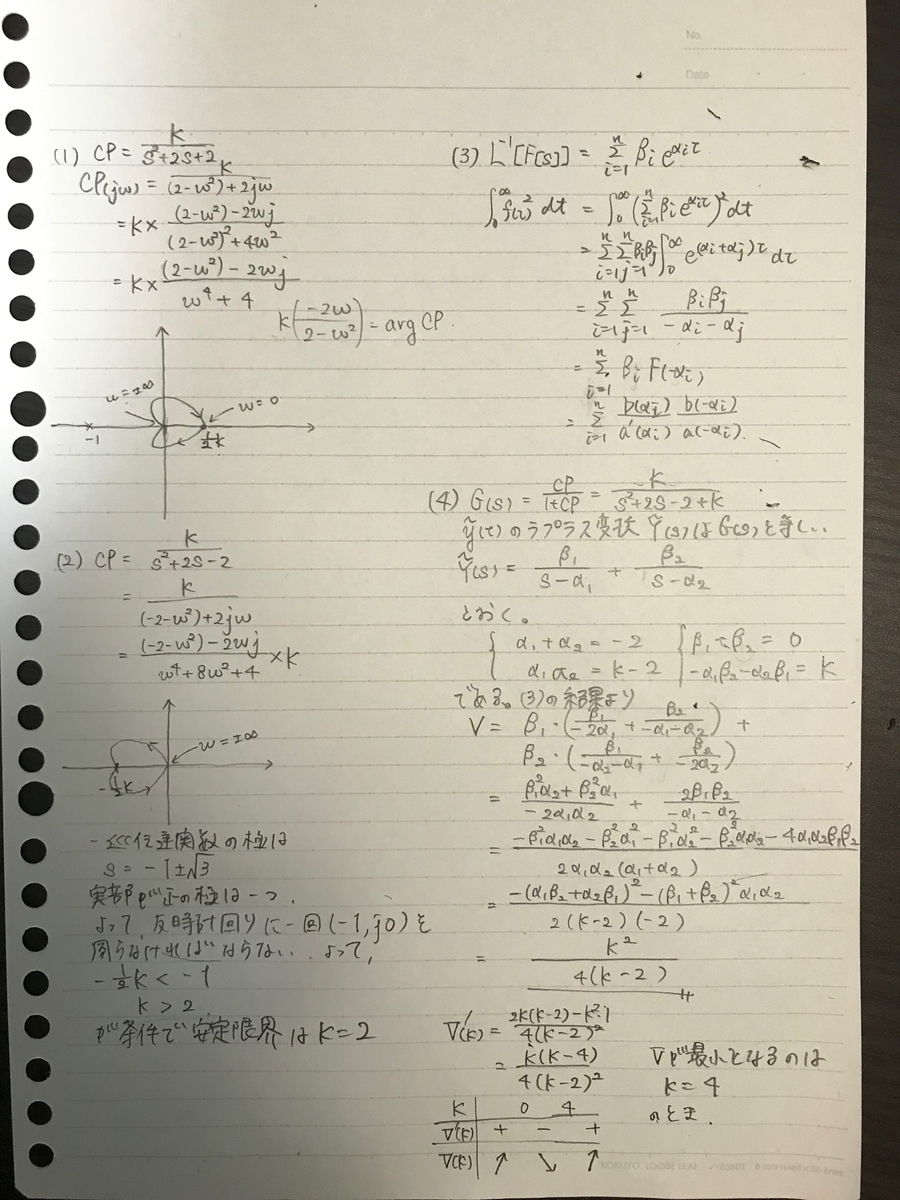 No.
Date
(1) CP = K/(s²+2s+2)
CP(jω) = K/((2-ω²)+2jω)
= K× ((2-ω²)-2ωj)/((2-ω²)²+4ω²)
= K× ((2-ω²)-2ωj)/(ω⁴+4)
K(-2ω/(2-ω²)) = arg CP.
ω=±∞
ω=0
-1
½K
(2) CP = K/(s²+2s-2)
= K/((-2-ω²)+2jω)
= ((-2-ω²)-2ωj)/(ω⁴+8ω²+4) ×K
ω=±∞
-½K
伝達関数の極は
s = -1±√3
実部が正の極は一つ
よって、反時計回りに一回(-1,j0)を
周らなければならない. よって,
-½K < -1
K > 2
が条件で安定限界はK=2
(3) L⁻¹[F(s)] = Σ_{i=1}^{n} βi e^{αiτ}
∫₀^∞ f(τ)² dt = ∫₀^∞ (Σ_{i=1}^{n} βi e^{αiτ})² dt
= Σ_{i=1}^{n} Σ_{j=1}^{n} βiβj ∫₀^∞ e^{(αi+αj)τ} dτ
= Σ_{i=1}^{n} Σ_{j=1}^{n} βiβj/(-αi-αj)
= Σ_{i=1}^{n} βi F(-αi)
= Σ_{i=1}^{n} b(αi)/a'(αi) b(-αi)/a(-αi).
(4) G(s) = CP/(1+CP) = K/(s²+2s-2+K)
ỹ(τ)のラプラス変換 Ỹ(s)はG(s)と等しい.
Ỹ(s) = β₁/(s-α₁) + β₂/(s-α₂)
とおく。
{ α₁+α₂ = -2 { β₁+β₂ = 0
α₁α₂ = K-2 -α₁β₂-α₂β₁ = K
である。(3)の結果より
V = β₁·(β₁/(-2α₁) + β₂/(-α₁-α₂)) +
β₂·(β₁/(-α₂-α₁) + β₂/(-2α₂))
= (β₁²α₂+β₂²α₁)/(-2α₁α₂) + 2β₁β₂/(-α₁-α₂)
= (-β₁²α₁α₂-β₂²α₁²-β₁²α₂²-β₂²α₁α₂-4α₁α₂β₁β₂)/(2α₁α₂(α₁+α₂))
= (-(α₁β₂+α₂β₁)²-(β₁+β₂)²α₁α₂)/(2(K-2)(-2))
= K²/(4(K-2))
V'(K) = (2K(K-2)-K²·1)/(4(K-2)²)
= K(K-4)/(4(K-2)²)
Vが最小となるのは
K=4
のとき.
K 0 4
V'(K) + - +
V(K) ↗ ↘ ↗
KOKUYO LOOSE-LEAF